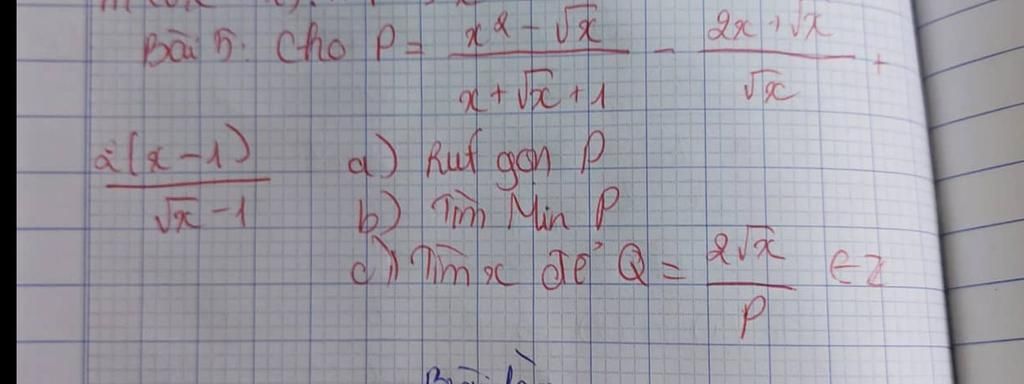 Bài 5: Cho P = \frac{x^2 - \sqrt{x}}{x + \sqrt{x} + 1} - \frac{2x + \sqrt{x}}{\sqrt{x}} +
\frac{2(x - 1)}{\sqrt{x} - 1} a) Rút gọn P
b) Tìm Min P
c) Tìm x để Q = \frac{2\sqrt{x}}{P} ∈ Z